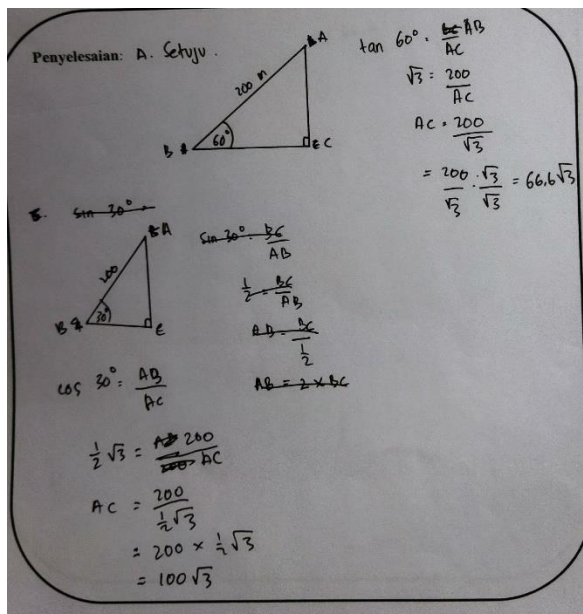 Penyelesaian: A. Setuju.
A
200 m
B 60° C
tan 60° = AB/AC
√3 = 200/AC
AC = 200/√3
= 200/√3 · √3/√3 = 66,6√3
sin 30° =
A
200
B 30° C
sin 30° = BC/AB
1/2 = BC/AB
AB = BC/(1/2)
AB = 2 × BC
cos 30° = AB/AC
1/2 √3 = 200/AC
AC = 200/(1/2 √3)
= 200 × 1/2 √3
= 100√3